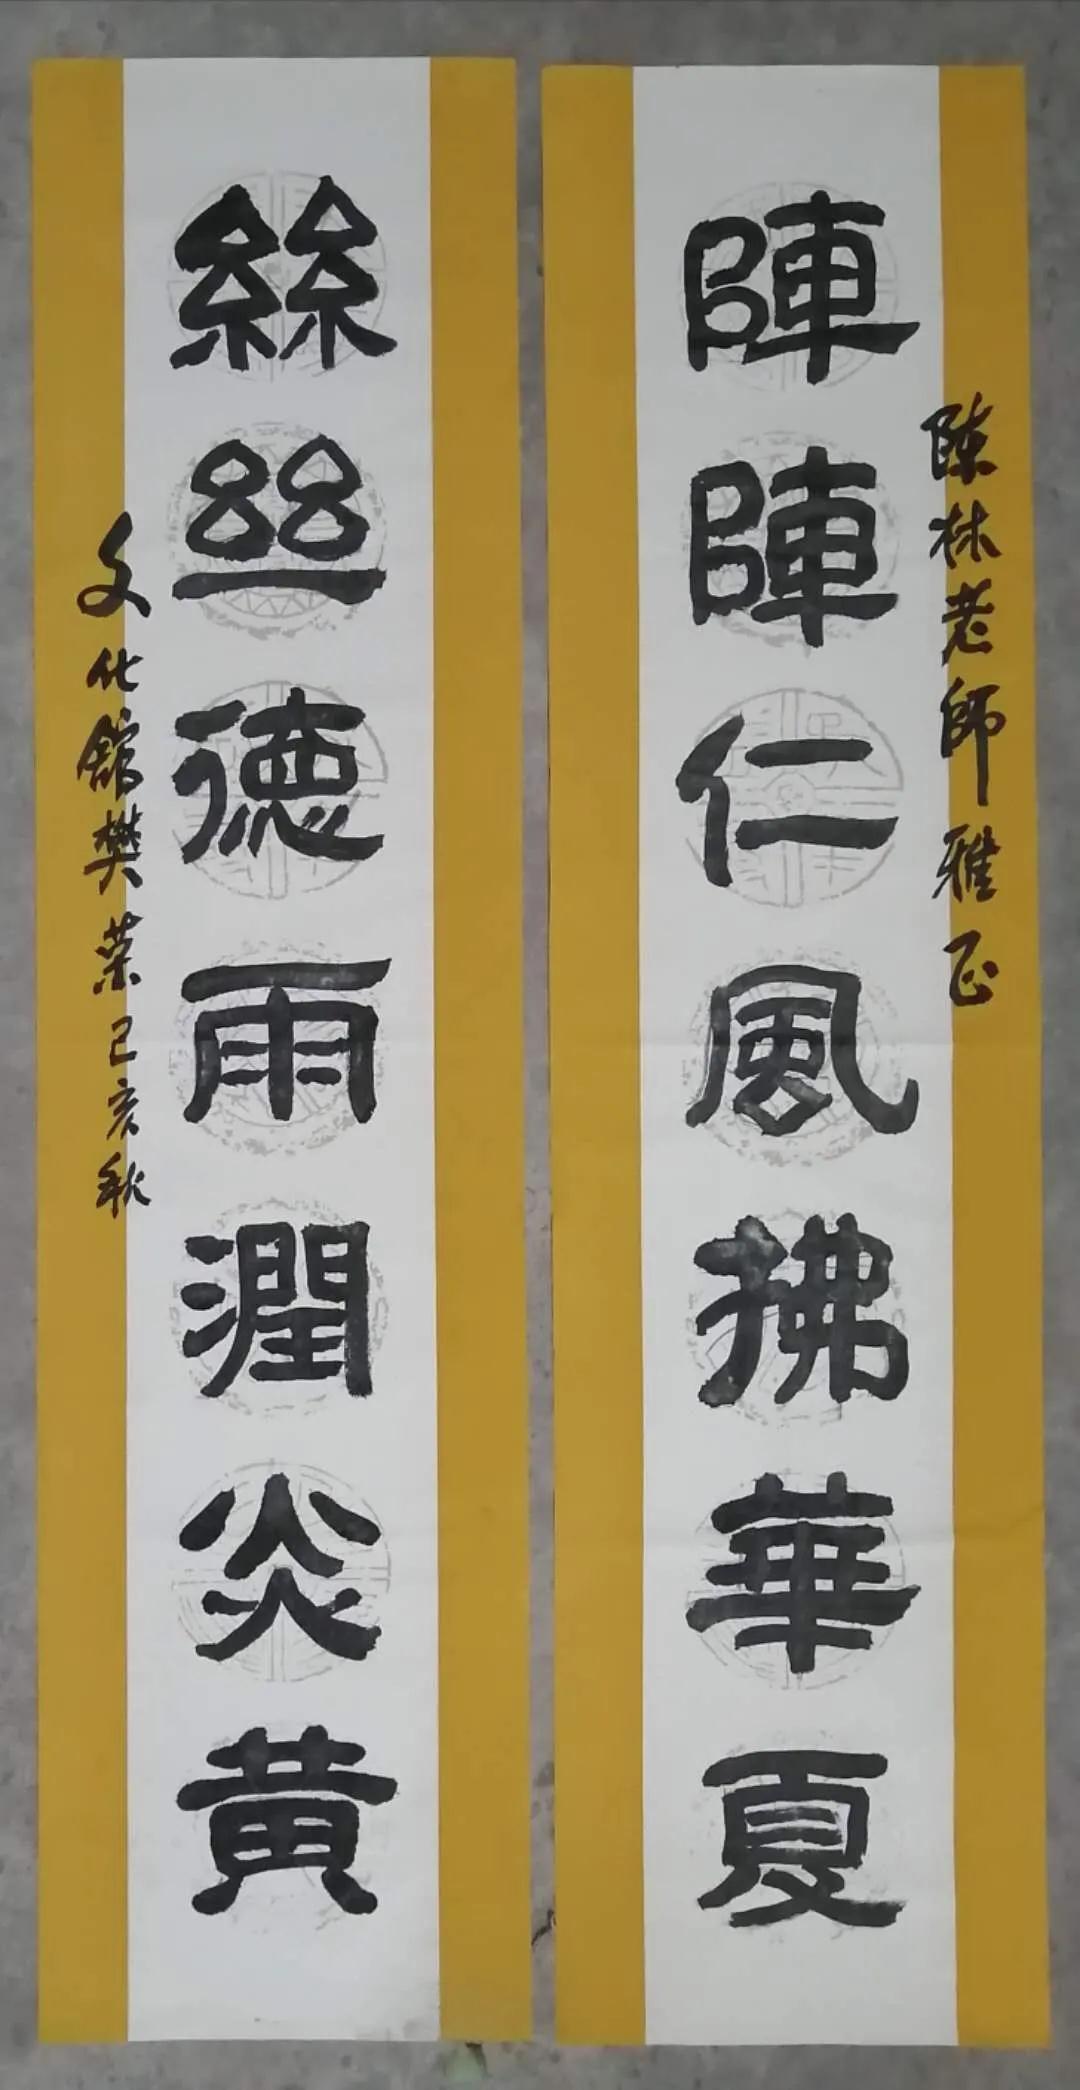 陳林老師雅正
陣陣仁風拂華夏
絲丝德雨潤炎黄
文化館樊荣己亥秋